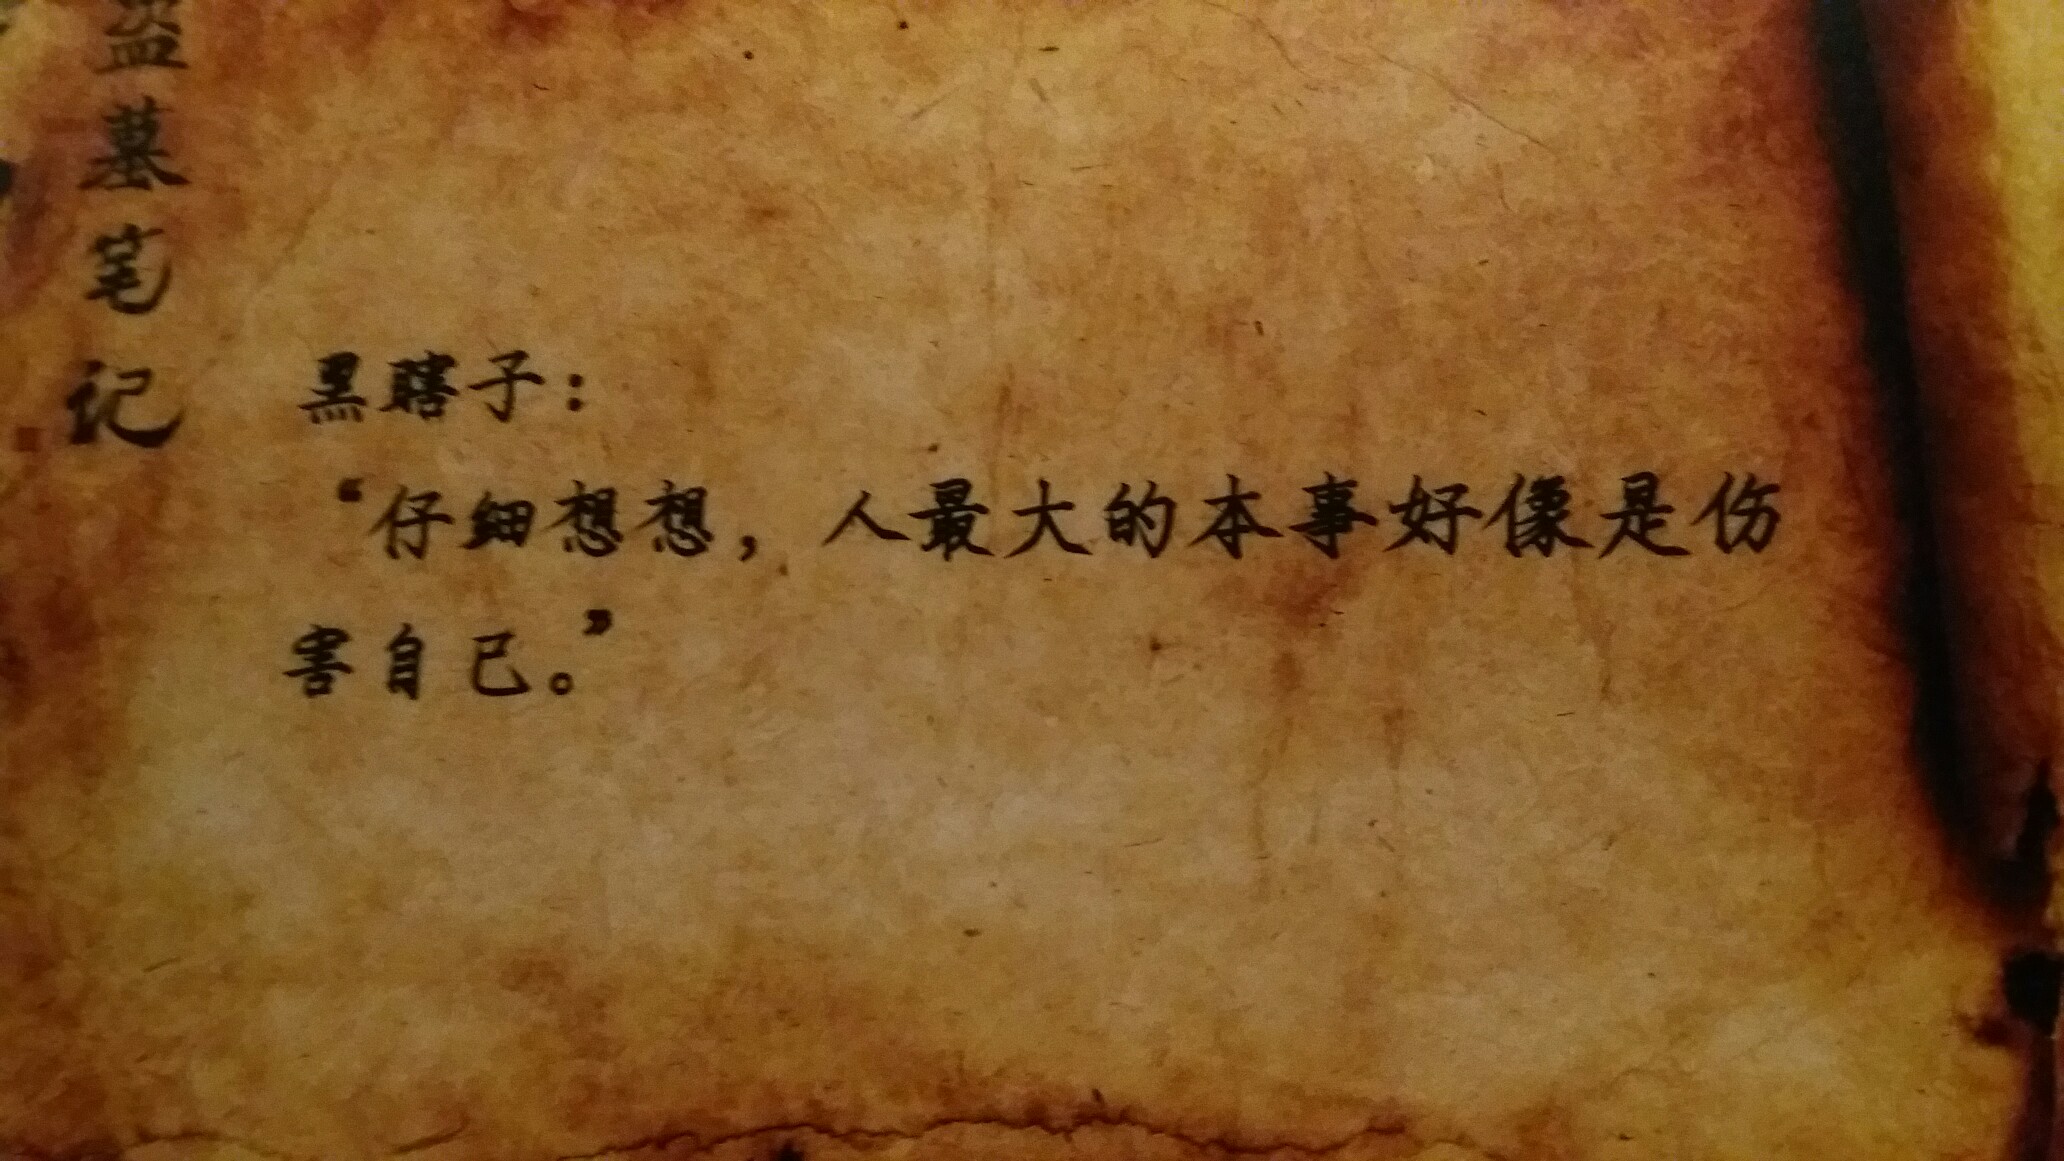 盗墓笔记
黑瞎子：
“仔细想想，人最大的本事好像是伤
害自己。”